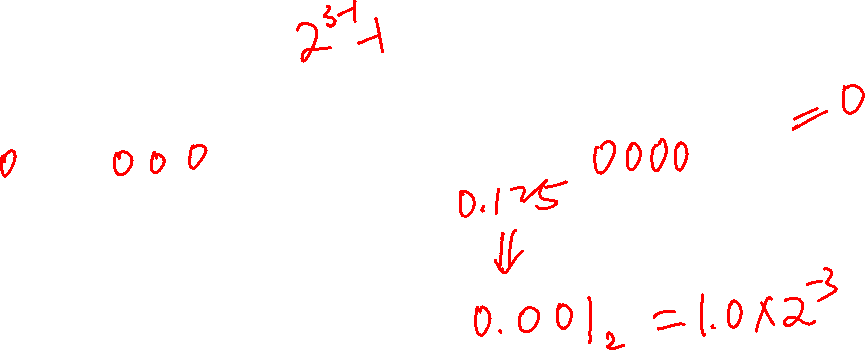 2^{3-1}-1
0 000 0000 =0
0.125
⇓
0.001₂ = 1.0×2^{-3}